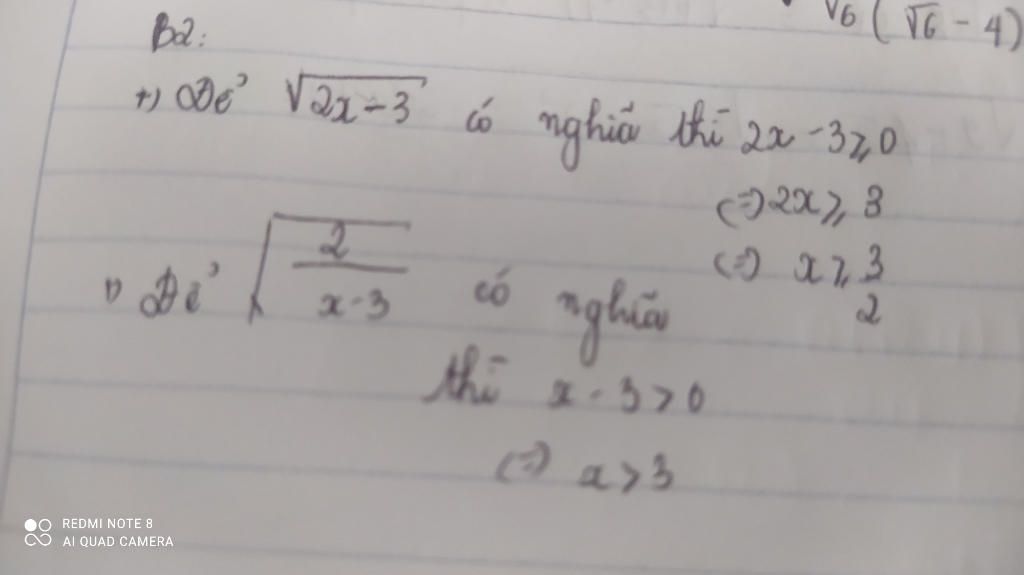 √6 (√6 - 4)
B2:
+) Để √2x-3 có nghĩa thì 2x-3⩾0
(=) 2x⩾3
(=) x⩾3/2
1) Để √2/x-3 có nghĩa
thì x-3>0
(=) x>3
REDMI NOTE 8
AI QUAD CAMERA